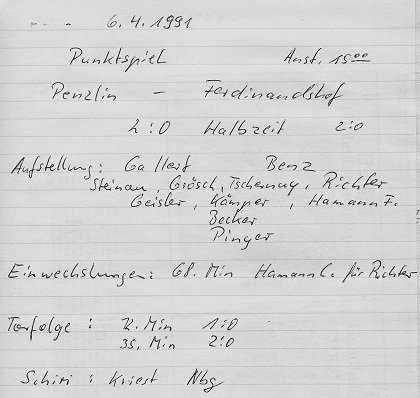 6.4.1991
Punktspiel Anst. 15 00
Penzlin - Ferdinandshof
2:0 Halbzeit 2:0
Aufstellung: Gallert Benz
Steinau, Grösch, Tschernay, Richter
Geisler, Kämper, Hamann F.
Becker
Pinger
Einwechslungen: 68. Min Hamann C. für Richter
Torfolge: 12. Min 1:0
35. Min 2:0
Schiri: Kriest Nbg